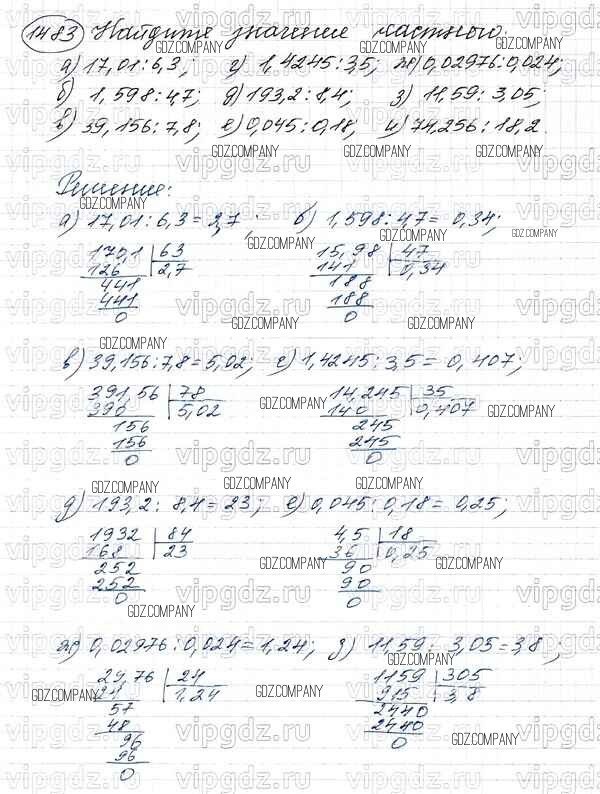 1483 Найдите значение частного:
а) 17,01 : 6,3; г) 1,4245 : 3,5; ж) 0,02976 : 0,024;
б) 1,598 : 4,7; д) 193,2 : 8,4; з) 11,59 : 3,05;
в) 39,156 : 7,8; е) 0,045 : 0,18; и) 74,256 : 18,2.
Решение:
а) 17,01 : 6,3 = 2,7; б) 1,598 : 4,7 = 0,34;
170,1 63 15,98 47
126 2,7 141 0,34
441 188
441 188
0 0
в) 39,156 : 7,8 = 5,02; г) 1,4245 : 3,5 = 0,407;
391,56 78 14,245 35
390 5,02 140 0,407
156 245
156 245
0 0
д) 193,2 : 8,4 = 23; е) 0,045 : 0,18 = 0,25;
1932 84 4,5 18
168 23 36 0,25
252 90
252 90
0 0
ж) 0,02976 : 0,024 = 1,24; з) 11,59 : 3,05 = 3,8;
29,76 24 1159 305
24 1,24 915 3,8
57 2440
48 2440
96 0
96
0
vipgdz.ru
GDZ.COMPANY